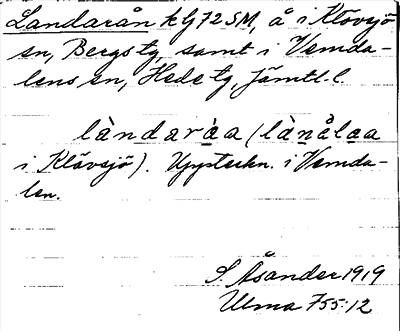 Landarån kG72SM, å i Klövsjö
sn, Bergs tg, samt i Vemda-
lens sn, Hede tg, Jämtl. l.
làndaràa (lànålaa
i Klövsjö). Uppteckn. i Vemda-
len.
S. Åsander 1919
Ulma 755:12